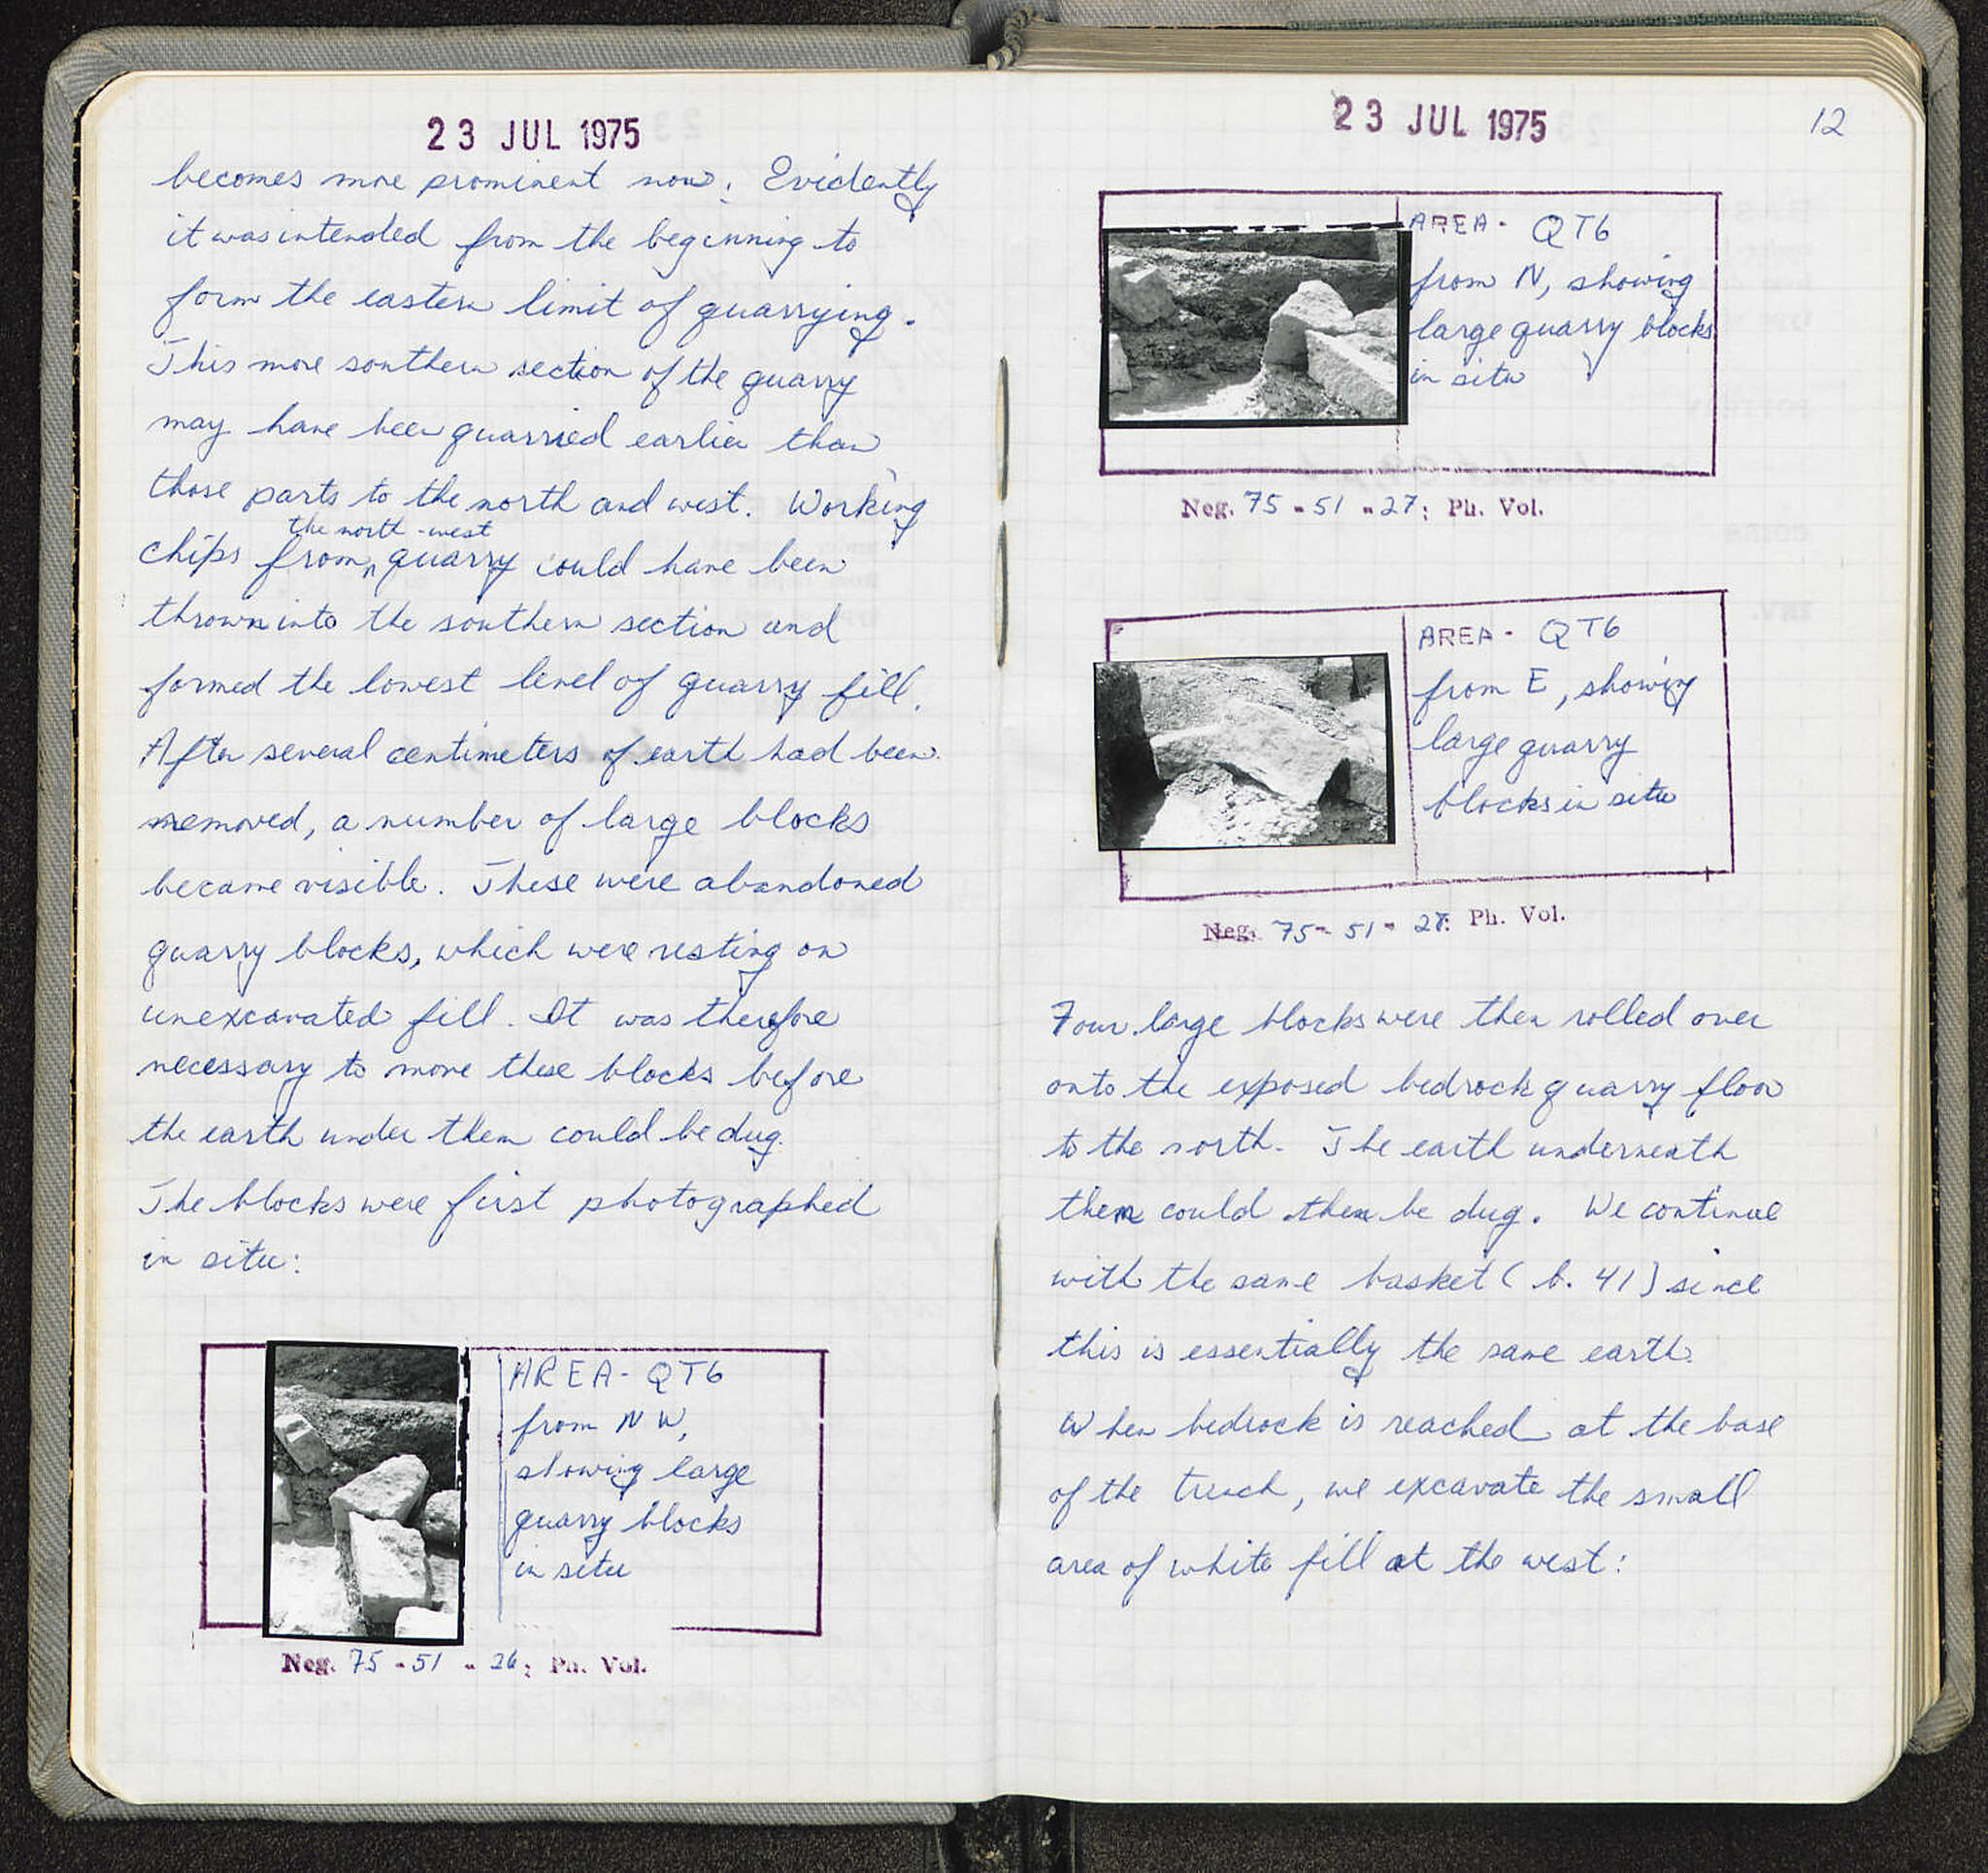 23 JUL 1975
becomes more prominent now. Evidently
it was intended from the beginning to
form the eastern limit of quarrying.
This more southern section of the quarry
may have been quarried earlier than
those parts to the north and west. Working
the north-west
chips from quarry could have been
thrown into the southern section and
formed the lowest level of quarry fill.
After several centimeters of earth had been
removed, a number of large blocks
became visible. These were abandoned
quarry blocks, which were resting on
unexcavated fill. It was therefore
necessary to move these blocks before
the earth under them could be dug.
The blocks were first photographed
in situ:
AREA- QT6
from NW,
showing large
quarry blocks
in situ
Neg. 75-51-26; Ph. Vol.
23 JUL 1975
12
AREA- QT6
from N, showing
large quarry blocks
in situ
Neg. 75-51-27; Ph. Vol.
AREA- QT6
from E, showing
large quarry
blocks in situ
Neg. 75-51-28: Ph. Vol.
Four large blocks were then rolled over
onto the exposed bedrock quarry floor
to the north. The earth underneath
them could then be dug. We continue
with the same basket (b. 41) since
this is essentially the same earth.
When bedrock is reached at the base
of the trench, we excavate the small
area of white fill at the west: